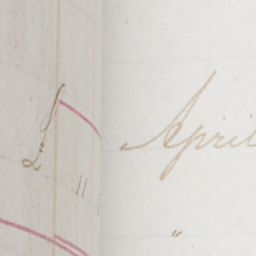 April
"